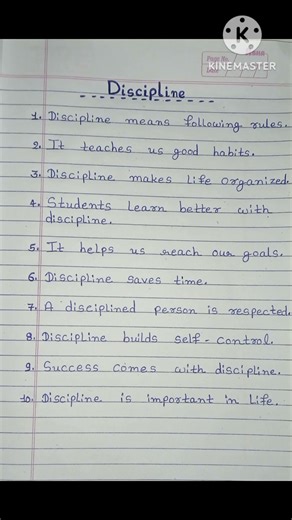 KINEMASTER
Page No.
Date
Discipline
1. Discipline means following rules.
2. It teaches us good habits.
3. Discipline makes life organized.
4. Students learn better with
discipline.
5. It helps us reach our goals.
6. Discipline saves time.
7. A disciplined person is respected.
8. Discipline builds self-control.
9. Success comes with discipline.
10. Discipline is important in life.